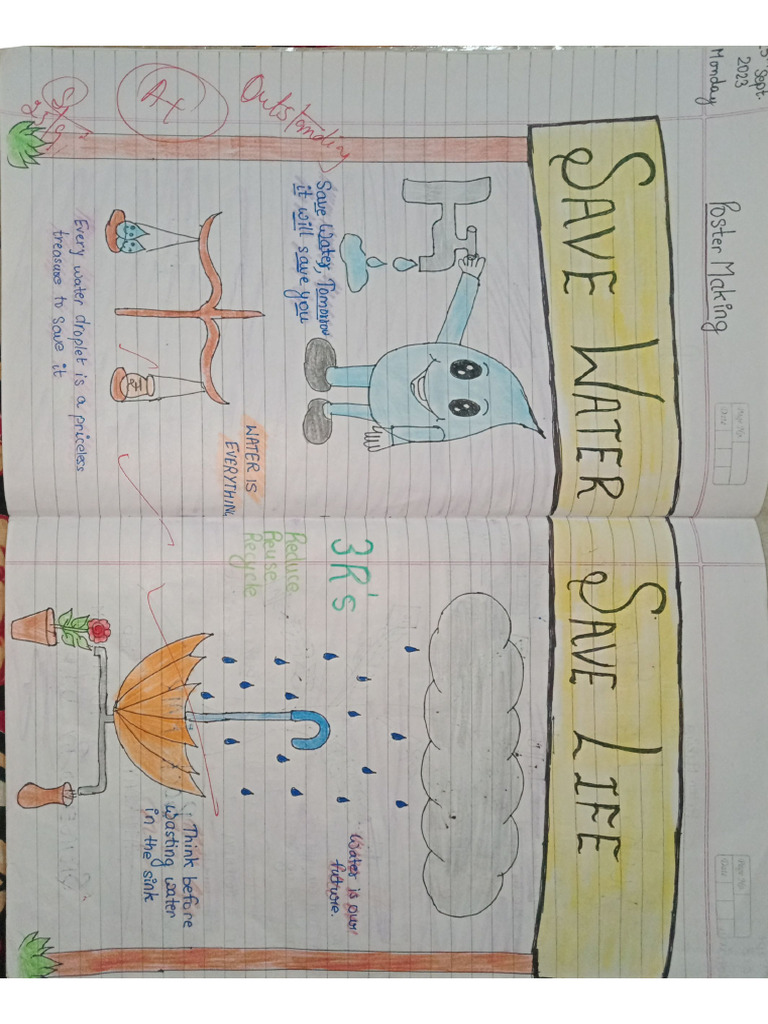 Sept.
2023
Monday
Poster Making
Page No.
Date
SAVE WATER
SAVE LIFE
Save Water, Tomorrow
it will save you
Outstanding
A+
WATER IS
EVERYTHING
Every water droplet is a priceless
treasure to save it
3R's
Reduce
Reuse
Recycle
Water is our
future.
Think before
wasting water
in the sink